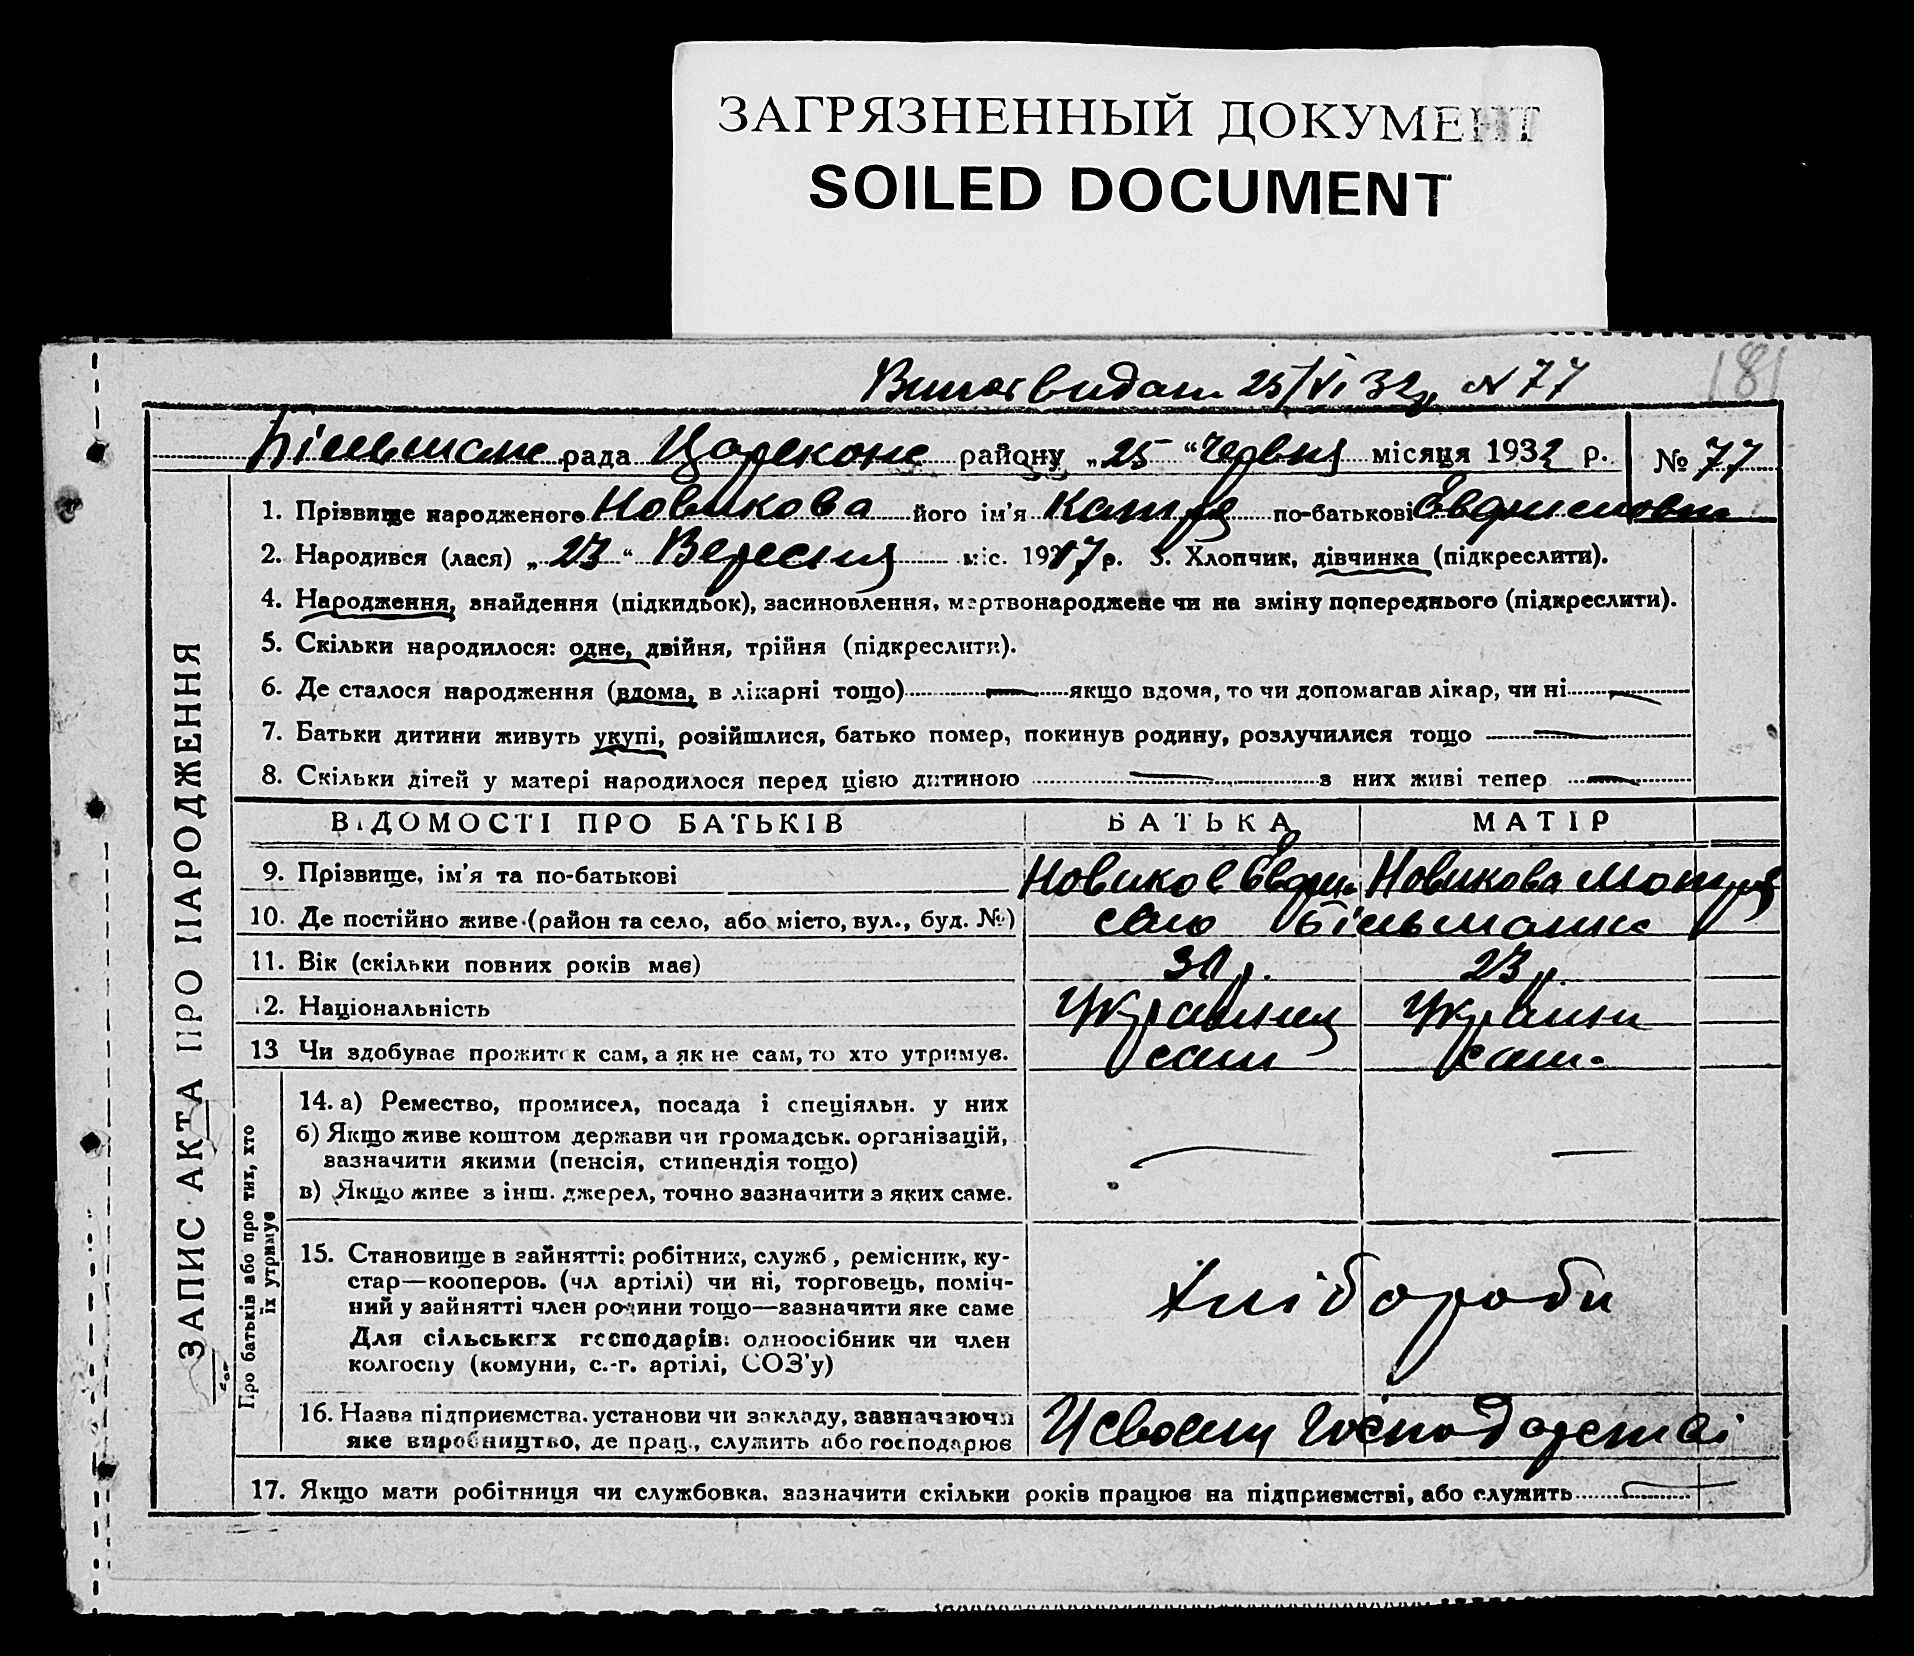 ЗАГРЯЗНЕННЫЙ ДОКУМЕНТ
SOILED DOCUMENT
181
видан 25/VI 32р. N 77
рада Цареконс району „25“ Червня місяця 1932 р. № 77
1. Прізвище народженого Новикова його ім'я по-батькові
2. Народився (лася) „23“ Вересня міс. 1917 р. 3. Хлопчик, дівчинка (підкреслити).
4. Народження, знайдення (підкидьок), засиновлення, мертвонароджене чи на зміну попереднього (підкреслити).
5. Скільки народилося: одне, двійня, трійня (підкреслити).
6. Де сталося народження (вдома, в лікарні тощо) — якщо вдома, то чи допомагав лікар, чи ні —
7. Батьки дитини живуть укупі, розійшлися, батько помер, покинув родину, розлучилися тощо —
8. Скільки дітей у матері народилося перед цією дитиною — з них живі тепер —
ЗАПИС АКТА ПРО НАРОДЖЕННЯ
ВІДОМОСТІ ПРО БАТЬКІВ БАТЬКА МАТІР
9. Прізвище, ім'я та по-батькові Новиков Новикова
10. Де постійно живе (район та село, або місто, вул., буд. №) село Більманка
11. Вік (скільки повних років має) 23 р.
12. Національність Українец Українка
13 Чи здобуває прожиток сам, а як не сам, то хто утримує. сам сам.
Про батьків або про тих, хто
їх утримує
14. а) Ремество, промисел, посада і спеціяльн. у них
б) Якщо живе коштом держави чи громадськ. організацій,
зазначити якими (пенсія, стипендія тощо) — —
в) Якщо живе з інш. джерел, точно зазначити з яких саме.
15. Становище в зайнятті: робітник, служб, ремісник, ку-
стар—кооперов. (чл артілі) чи ні, торговець, поміч-
ний у зайнятті член родини тощо—зазначити яке саме Хлібороби
Для сільських господарів: одноосібник чи член
колгоспу (комуни, с.-г. артілі, СОЗ'у)
16. Назва підприємства, установи чи закладу, зазначаючи
яке виробництво, де прац., служить або господарює У своєму господарстві
17. Якщо мати робітниця чи службовка, зазначити скільки років працює на підприємстві, або служить —